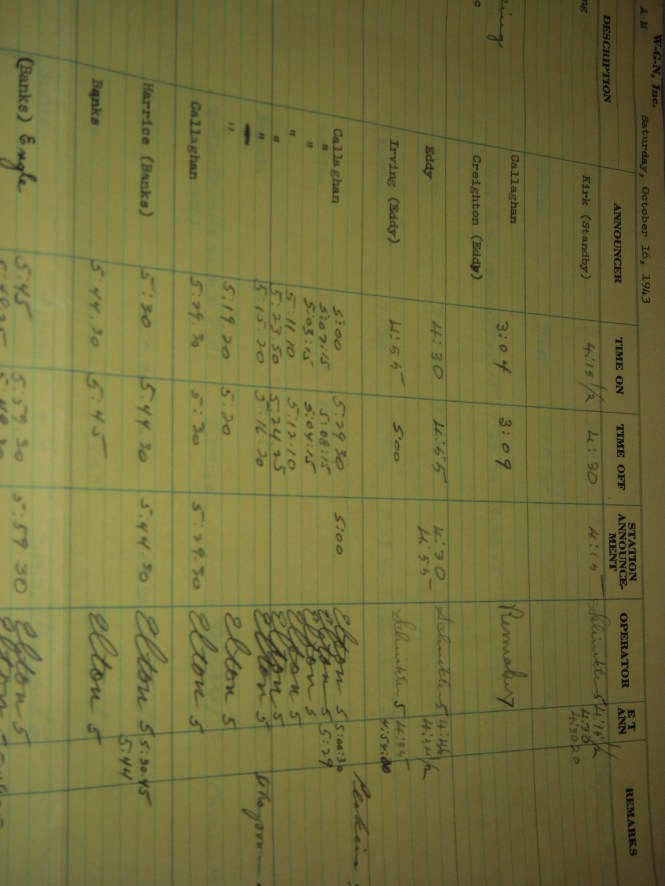 W-G-N, Inc. Saturday, October 16, 1943
A M
DESCRIPTION ANNOUNCER TIME ON TIME OFF STATION ANNOUNCE-MENT OPERATOR E T ANN REMARKS
ng Kirk (Standby) 4:15 1/2 4:30 4:15
4:30
4:30 20
Callaghan 3:04 3:09
Creighton (Eddy)
Eddy 4:30 4:55 4:30
4:55
Irving (Eddy) 4:55 5:00
4:59:00
Callaghan 5:00 5:29 30 5:00 Elton 5 5:00:30
" 5:07:15 5:08:15 Elton 5 5:29
" 5:03:15 5:04:15 Elton 5
" 5 11 10 5:12 10 Elton 5
" 5:23 50 5:24 25 Elton 5
" 5:15 20 5:16 20 Elton 5
" 5:19 20 5:20 Elton 5
Callaghan 5:29 30 5:30 5:29.30 Elton 5
Harrice (Banks) 5:30 5:44 30 5:44 30 Elton 5 5:30:45
5:44
Banks 5:44.30 5:45 Elton 5
(Banks) Engle 5:45 5:59 30 5:59 30 Elton 5